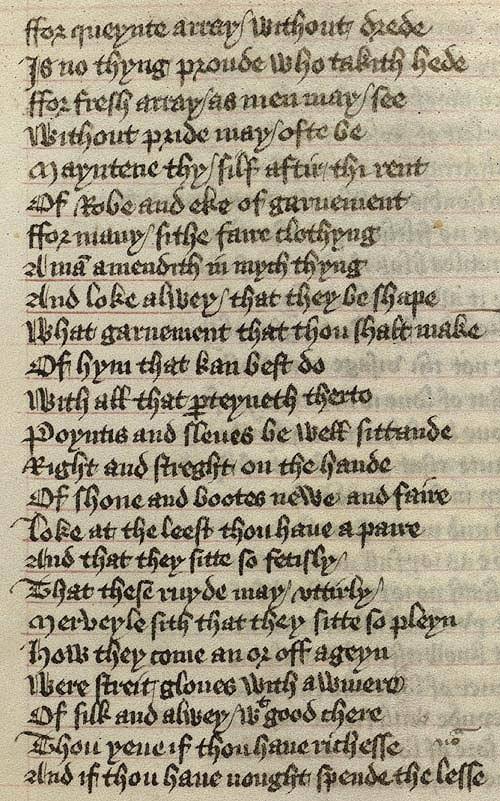 ffor queynte array / without drede
Is no thyng proude who takith hede
ffor fresh array / as men may / see
Without pride may / ofte be
Mayntene thy / silf aftir thi rent
Of Robe and eke of garnement
ffor many / sithe faire clothyng
A mā amendith in mych thyng
And loke alwey / that they be shape
What garnement that thou shalt make
Of hym that kan best do
With all that ꝑteyneth therto
Poyntis and sleues be well sittande
Right and streght on the hande
Of shone and bootes newe and faire
Loke at the leest thou haue a paire
And that they sitte so fetisly /
That these ruyde may / vttirly /
Merveyle sith that they sitte so pleyn
How they come an or off ageyn
Were streit gloues with awmere
Of silk and alwey / wᵗ good chere
Thou yeue if thou haue richesse
And if thou haue nought spende the lesse